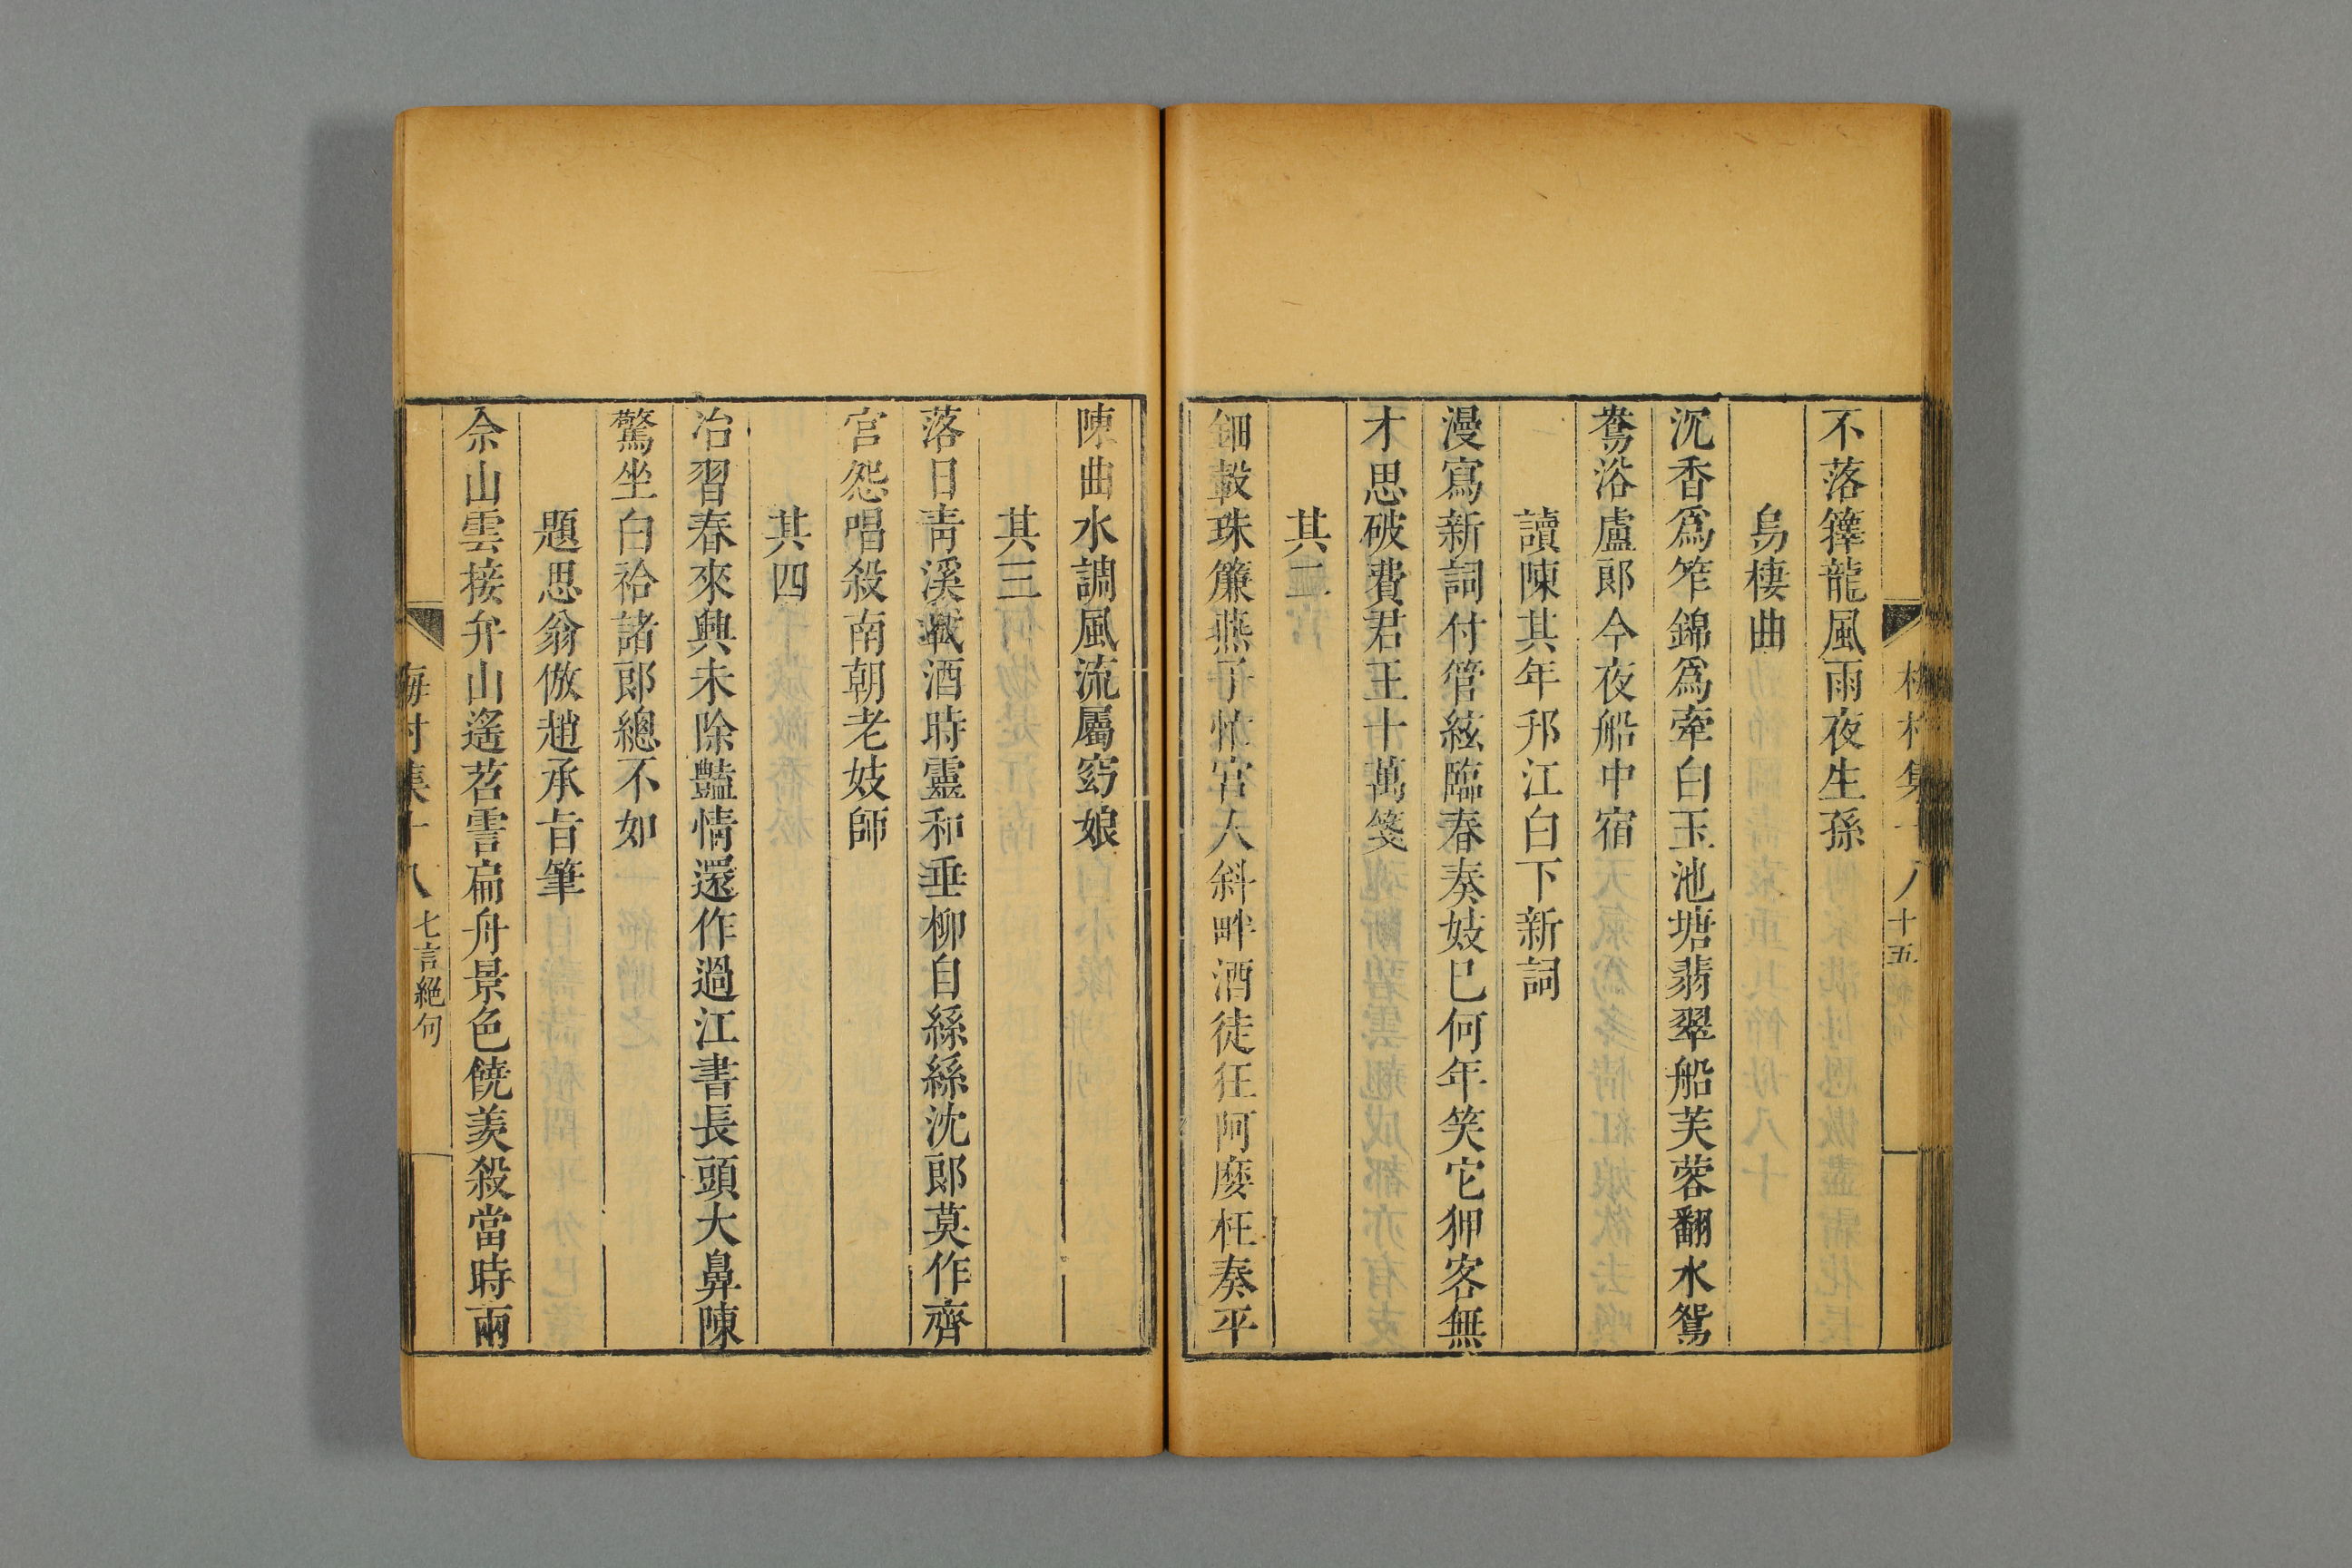 梅村集十八 十五
不落籜龍風雨夜生孫
烏棲曲
沉香爲笮錦爲牽白玉池塘翡翠船芙蓉翻水鴛
鴦浴盧郎今夜船中宿
讀陳其年邗江白下新詞
漫寫新詞付管絃臨春奏妓已何年笑它狎客無
才思破費君王十萬箋
其二
鈿轂珠簾燕子忙宮人斜畔酒徒狂阿㢱枉奏平
陳曲水調風流屬窈娘
其三
落日靑溪載酒時靈和垂柳自絲絲沈郎莫作齊
宮怨唱殺南朝老妓師
其四
冶習春來興未除豔情還作過江書長頭大鼻陳
驚坐白袷諸郎總不如
題思翁倣趙承旨筆
佘山雲接弁山遙苕霅扁舟景色饒羨殺當時兩
梅村集十八 七言絕句